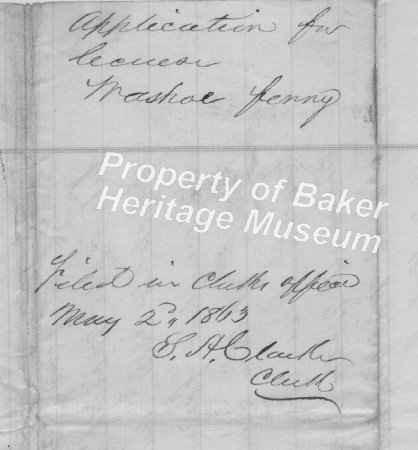 Application for
licuese
Washoe ferry
Property of Baker
Heritage Museum
Filed in Clerks office
May 2d, 1863
S. A. Clarke
Clerk